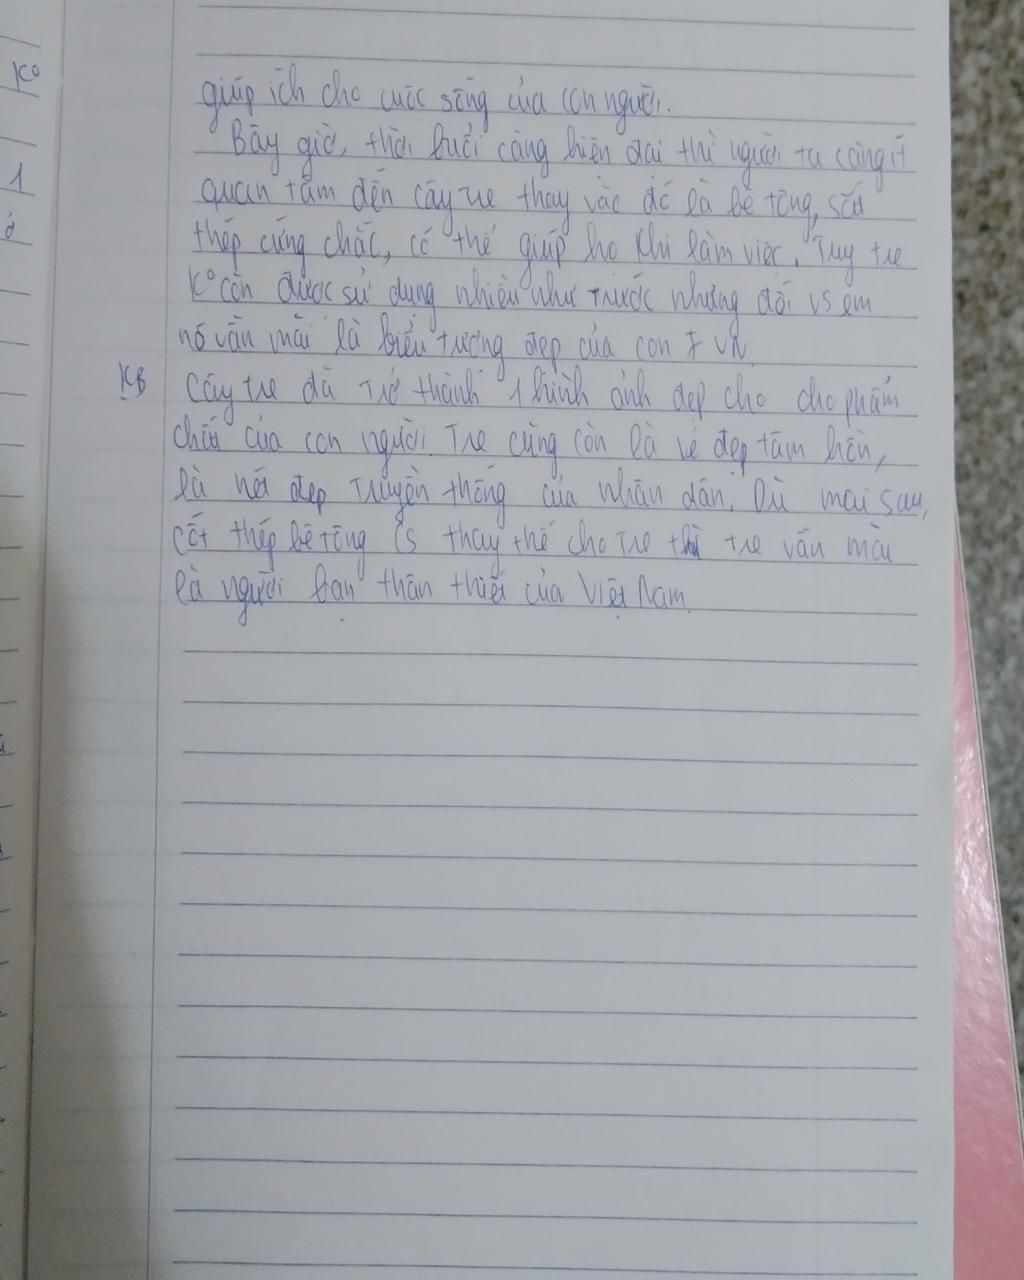 K°
1
giúp ích cho cuộc sống của con người.
Bây giờ, thời buổi càng hiện đại thì người ta càng ít
quan tâm đến cây tre thay vào đó là bê tông, sắt
thép cứng chắc, có thể giúp họ khi làm việc. Tuy tre
K° còn được sử dụng nhiều như trước nhưng đối vs em
nó vẫn mãi là biểu tượng đẹp của con ng VN
KB Cây tre đã trở thành 1 hình ảnh đẹp cho cho phẩm
chất của con người. Tre cũng còn là vẻ đẹp tâm hồn,
là nét đẹp truyền thống của nhân dân. Dù mai sau,
cốt thép bê tông cs thay thế cho tre thì tre vẫn mãi
là người bạn thân thiết của Việt Nam.